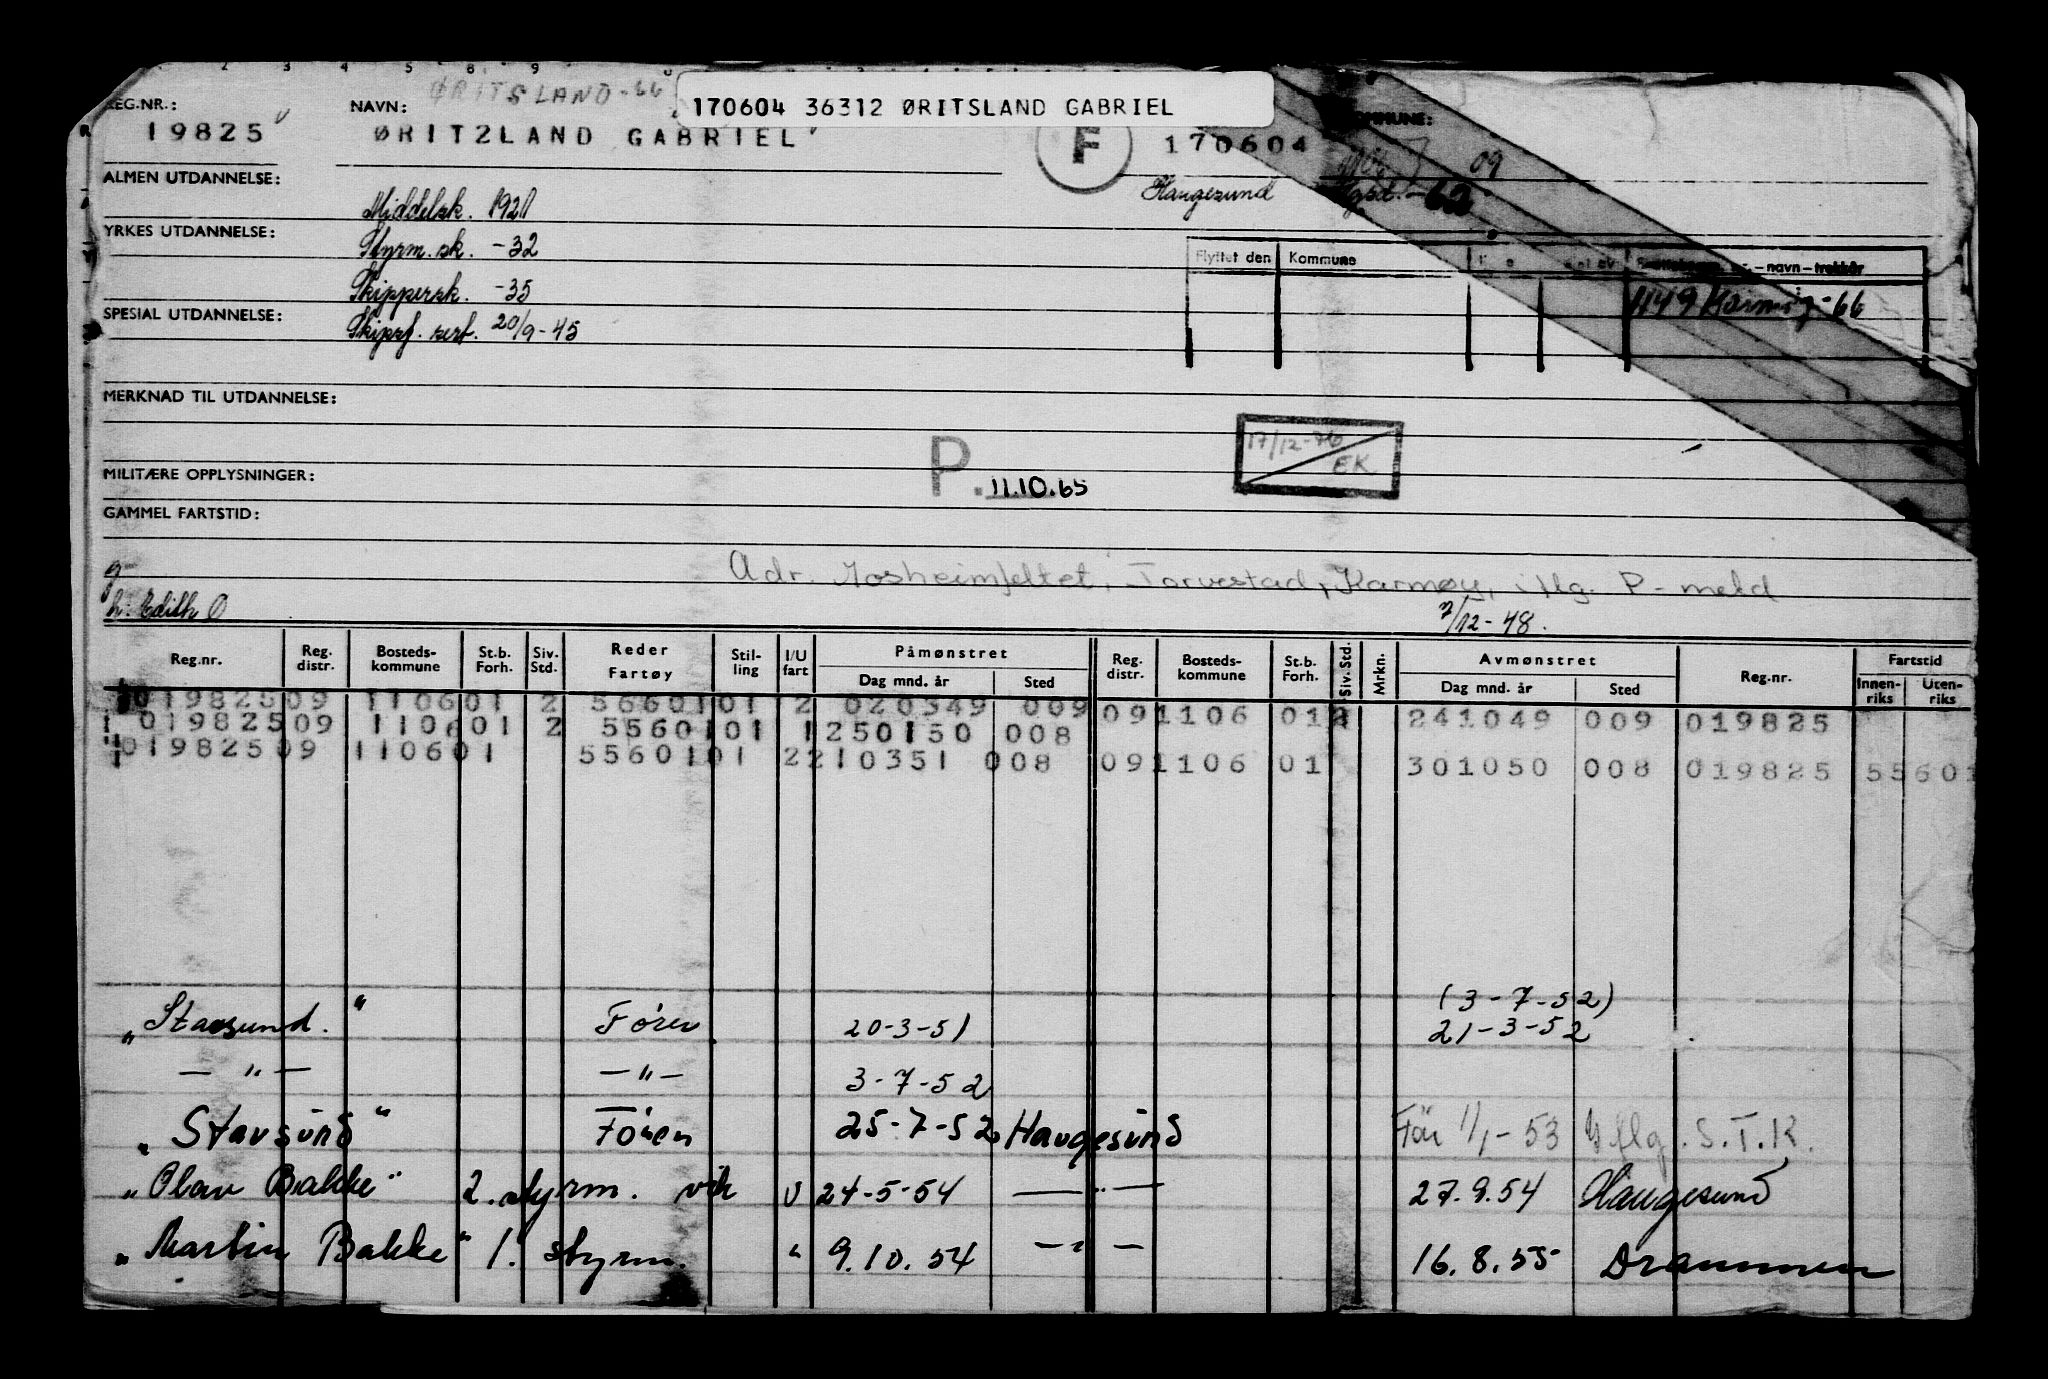 ØRITSLAND-66
170604 36312 ØRITSLAND GABRIEL
REG.NR.: NAVN: KOMMUNE:
19825 ØRITZLAND GABRIEL F 170604 09
ALMEN UTDANNELSE: Middelsk. 1921 Haugesund Hgsd.-62
YRKES UTDANNELSE: Styrm.sk. -32
Flyttet den Kommune navn-trekkår
Skippersk. -35 1149 Karmøy-66
SPESIAL UTDANNELSE: Skipsf. sert. 20/9-45
MERKNAD TIL UTDANNELSE:
17/12-76
EK
MILITÆRE OPPLYSNINGER: P. 11.10.65
GAMMEL FARTSTID:
Adr. Josheimfeltet, Torvestad, Karmøy, iflg. P-meld
g
h: Edith Ø 7/12-48.
Reg.nr. Reg. distr. Bosteds-kommune St.b. Forh. Siv. Std. Reder Fartøy Stil-ling I/U fart Påmønstret Dag mnd. år Sted Reg. distr. Bosteds-kommune St.b. Forh. Siv.Std. Mrkn. Avmønstret Dag mnd. år Sted Reg.nr. Fartstid Innen-riks Uten-riks
019825 09 1106 01 2 5560101 2 020349 009 09 1106 01 2 241049 009 019825
019825 09 1106 01 2 5560101 1 250150 008
019825 09 1106 01 5560101 2 210351 008 09 1106 01 301050 008 019825 55601
(3-7-52)
"Stavsund." Fører 20-3-51 21-3-52
— " — — " — 3-7-52
"Stavsund" Føren 25-7-52 Haugesund Før 1/1-53 Iflg. S.T.K.
"Olav Bakke" 2. styrm. vik U 24-5-54 — " — 27.9.54 Haugesund
"Martin Bakke" 1. styrm. " 9.10.54 — " — 16.8.55 Drammen